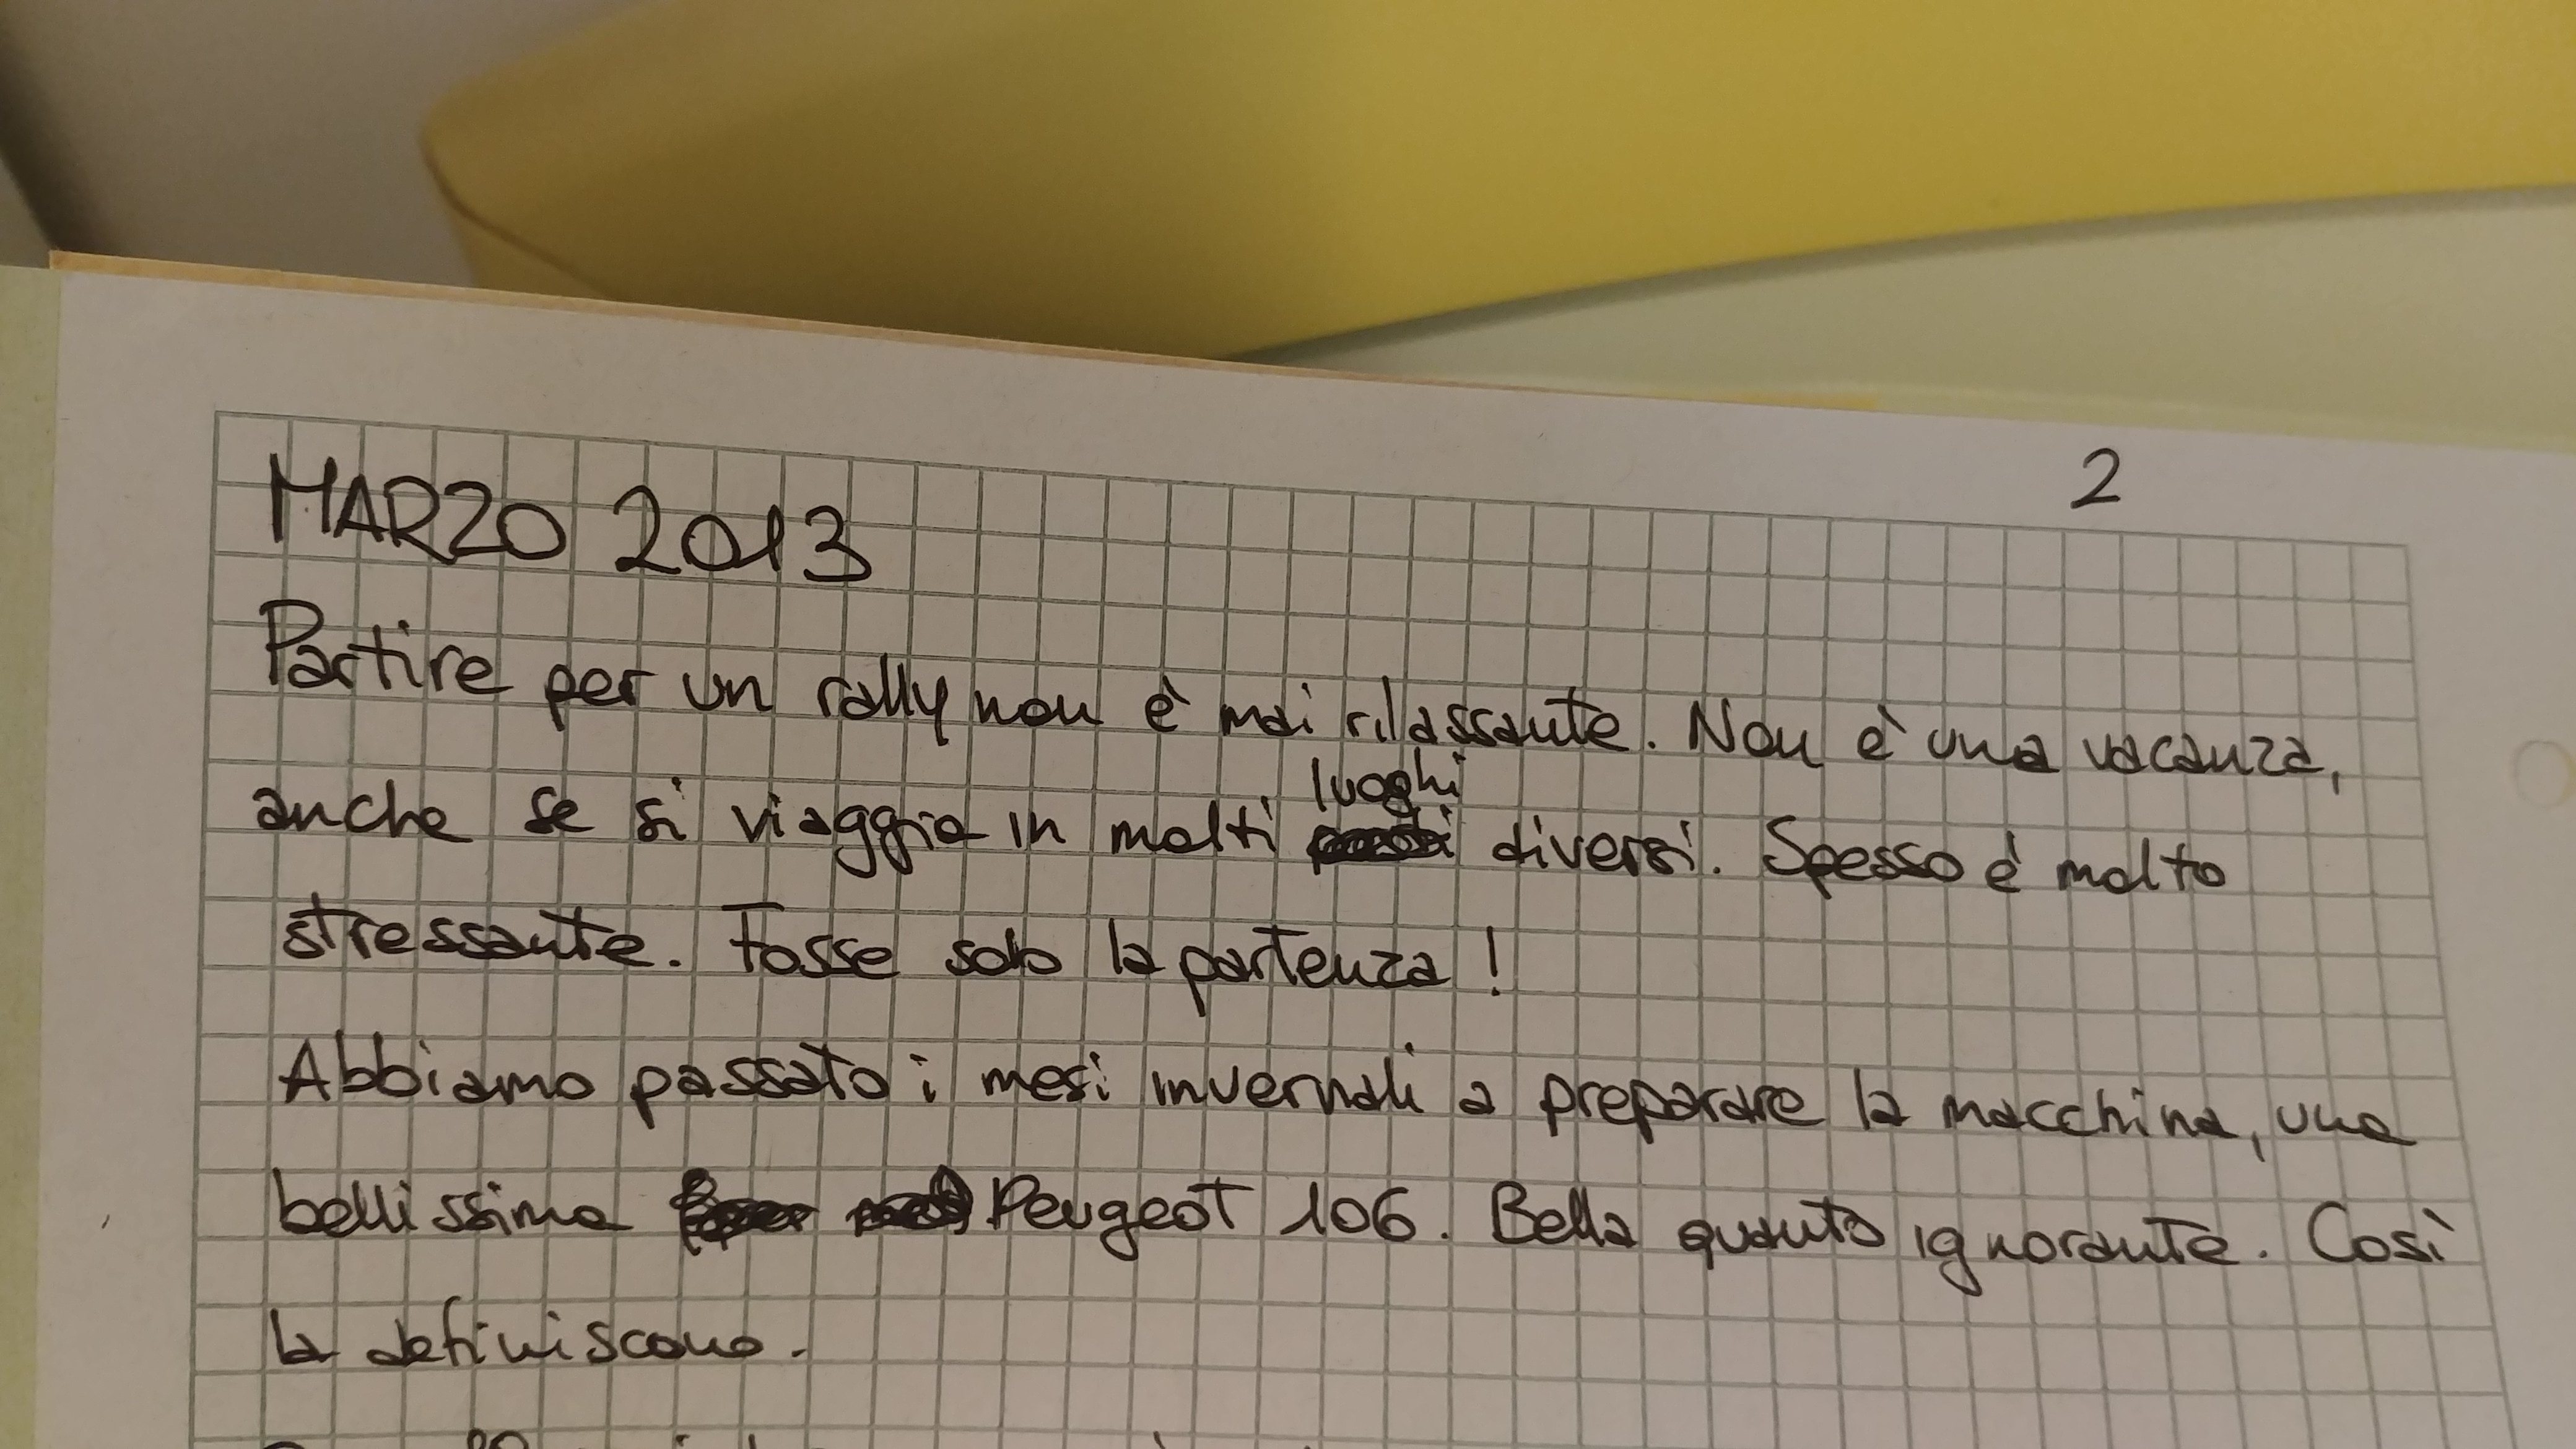 2
MARZO 2013
Partire per un rally non è mai rilassante. Non è una vacanza,
anche se si viaggia in molti luoghi diversi. Spesso è molto
stressante. Fosse solo la partenza!
Abbiamo passato i mesi invernali a preparare la macchina, una
bellissima Peugeot 106. Bella quanto ignorante. Così
la definiscono.